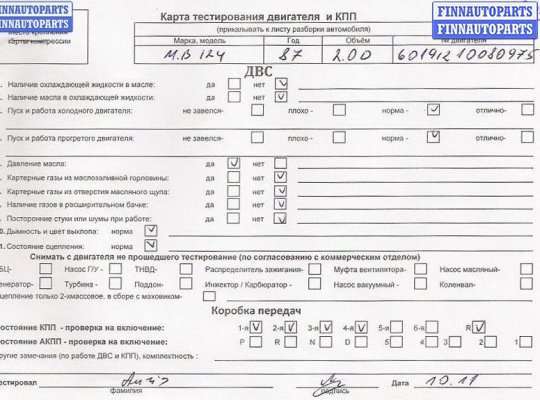 FINNAUTOPARTS
FINNAUTOPARTS
FINNAUTOPARTS
FINNAUTOPARTS
Место крепления
карты компрессии
Карта тестирования двигателя и КПП
(прикалывать к листу разборки автомобиля)
Марка, модель Год Объём № двигателя
М.В 124 87 2.0D 601912 10080975
ДВС
. Наличие охлаждающей жидкости в масле: да нет V
. Наличие масла в охлаждающей жидкости: да нет V
. Пуск и работа холодного двигателя: не завелся- плохо - норма - V отлично-
. Пуск и работа прогретого двигателя: не завелся- плохо - норма - V отлично-
. Давление масла: да V нет
. Картерные газы из маслозаливной горловины: да нет V
. Картерные газы из отверстия масляного щупа: да нет V
. Наличие газов в расширительном бачке: да нет V
. Посторонние стуки или шумы при работе: да нет V
0. Дымность и цвет выхлопа: норма V
1. Состояние сцепления: норма V
Снимать с двигателя не прошедшего тестирование (по согласованию с коммерческим отделом)
БЦ- Насос Г/У - ТНВД- Распределитель зажигания- Муфта вентилятора- Насос масляный-
енератор- Турбина - Поддон- Инжектор / Карбюратор - Насос вакуумный - Коленвал-
цепление только 2-хмассовое, в сборе с маховиком-
Коробка передач
остояние КПП - проверка на включение: 1-я V 2-я V 3-я V 4-я V 5-я 6-я R V
остояние АКПП - проверка на включение: P R N D 5 4 3 2 1
ругие замечания (по работе ДВС и КПП), комплектность :
естировал Дата 10.11
фамилия подпись